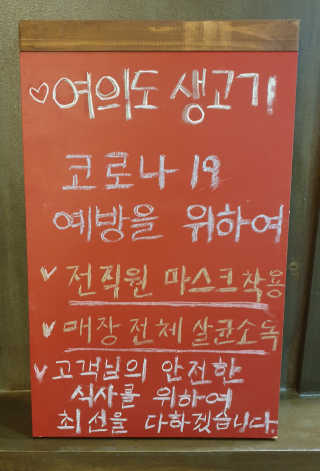 ♡여의도 생고기
코로나19
예방을 위하여
✓ 전직원 마스크착용
✓ 매장 전체 살균소독
✓ 고객님의 안전한
식사를 위하여
최선을 다하겠습니다.